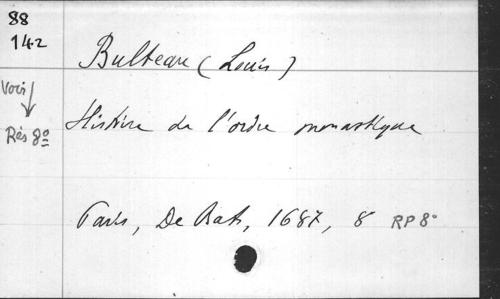 88
142
Bulteau (Louis)
Voir
Rés 8º
Histoire de l'ordre monastique
Paris, De Bats, 1687, 8 RP 8º